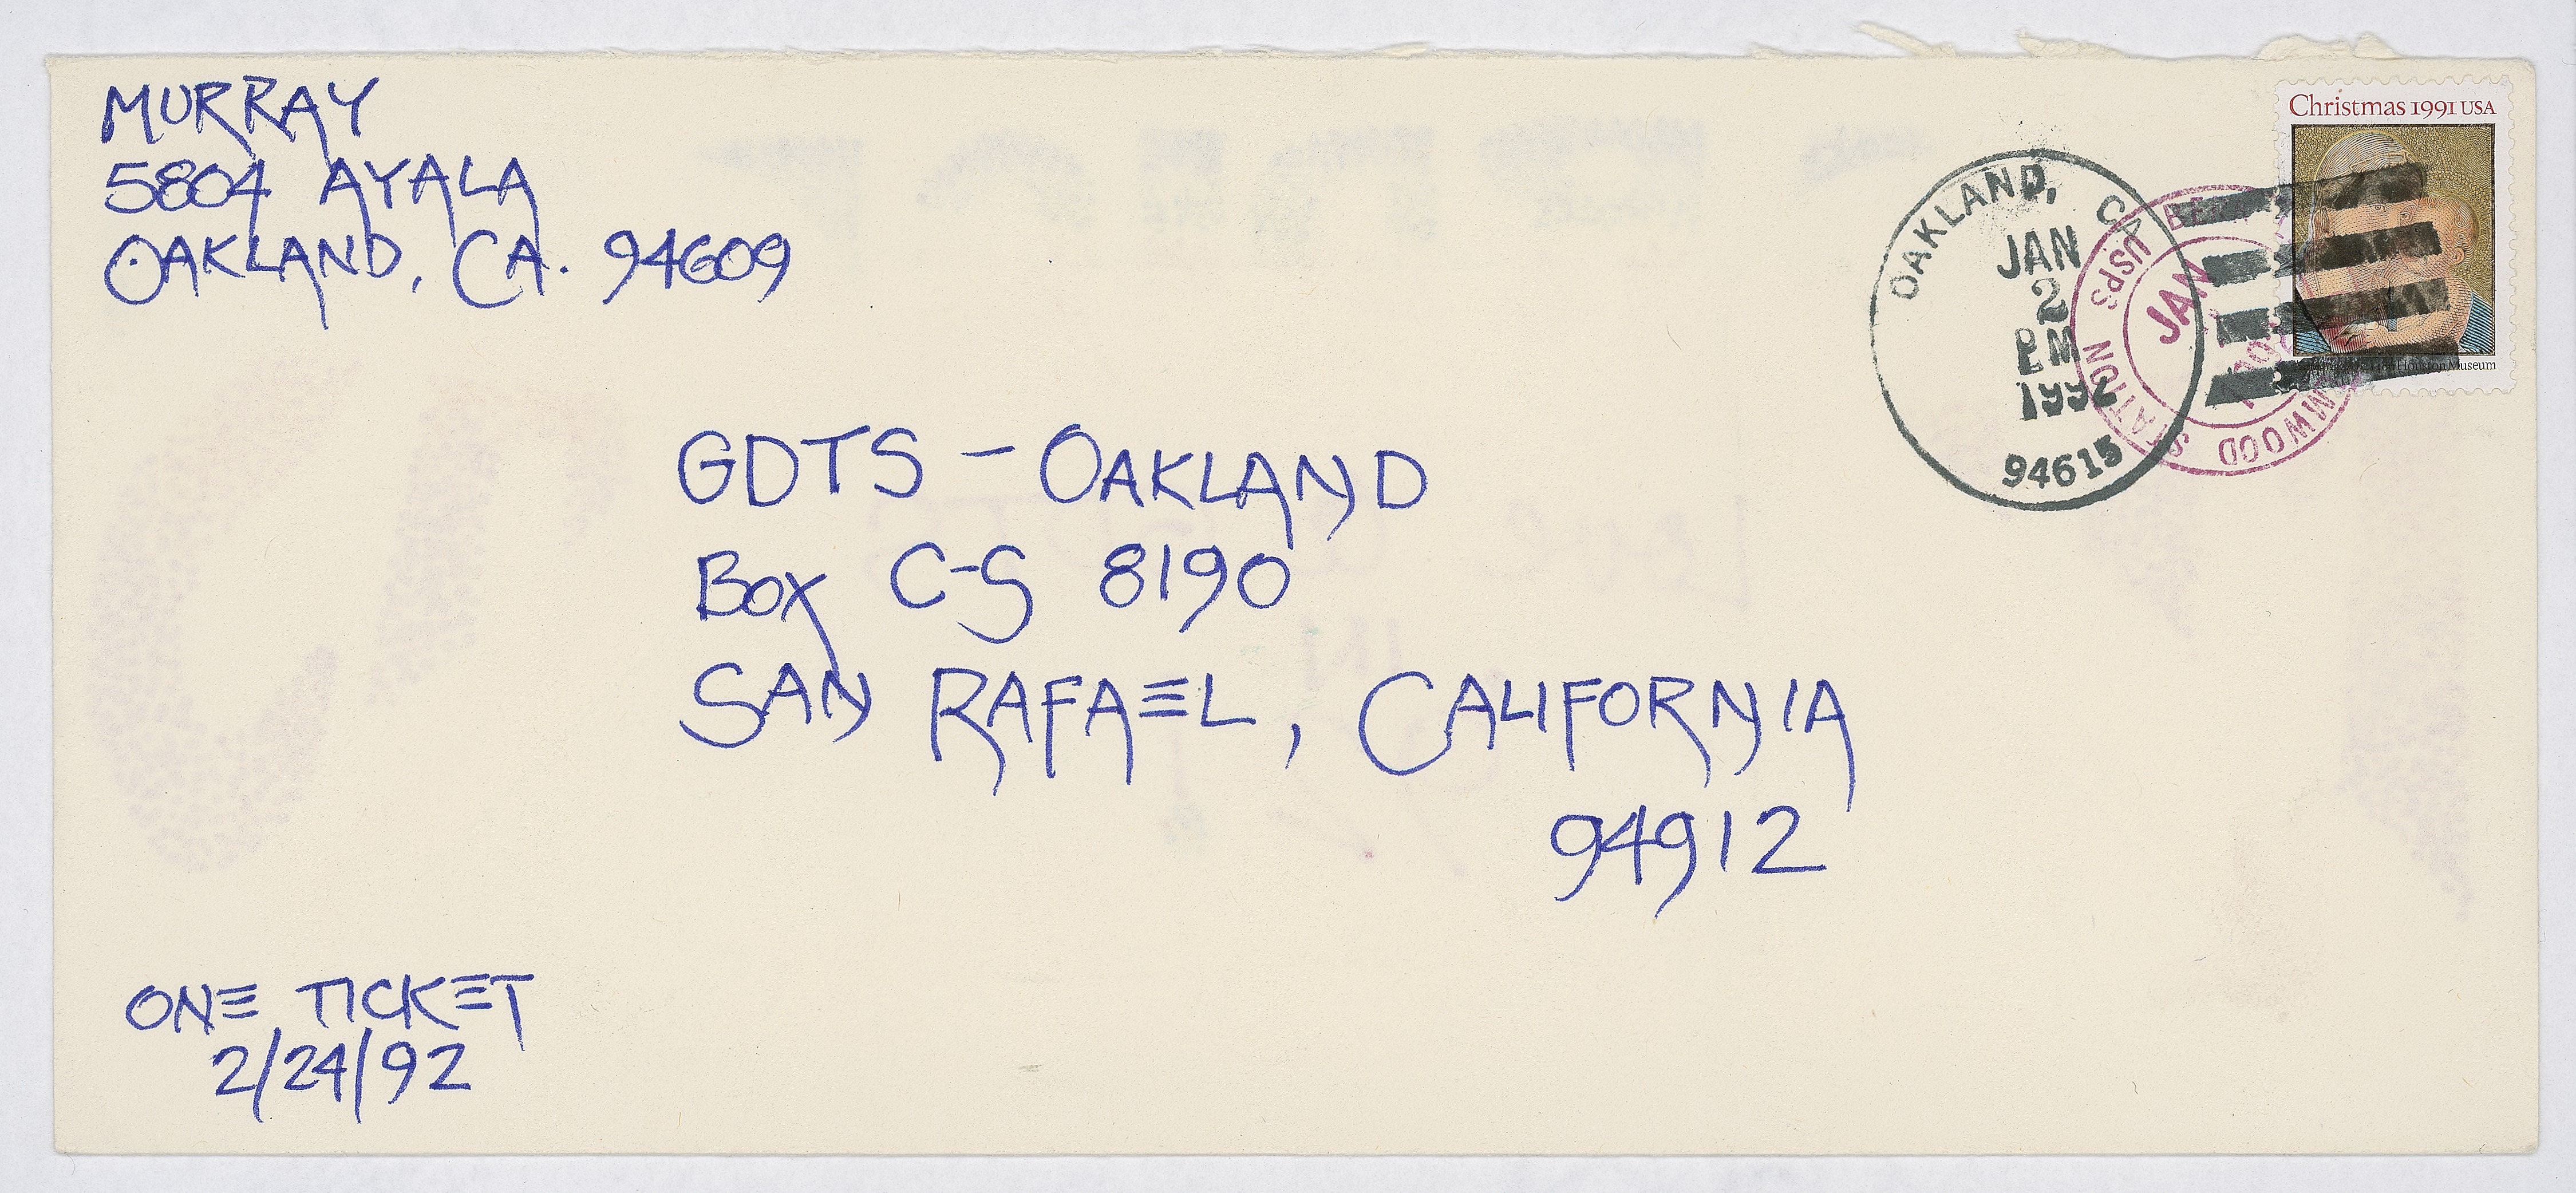 MURRAY
5804 AYALA
OAKLAND, CA. 94609
Christmas 1991 USA
Houston Museum
OAKLAND, CA
JAN
2
PM
1992
94615
USPS
JAN
STATION
GDTS - OAKLAND
BOX C-S 8190
SAN RAFAEL, CALIFORNIA
94912
ONE TICKET
2/24/92